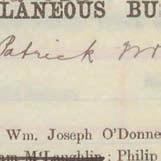 LANEOUS BU
Patrick
Wm. Joseph O'Donne
am McLaughlin; Philip